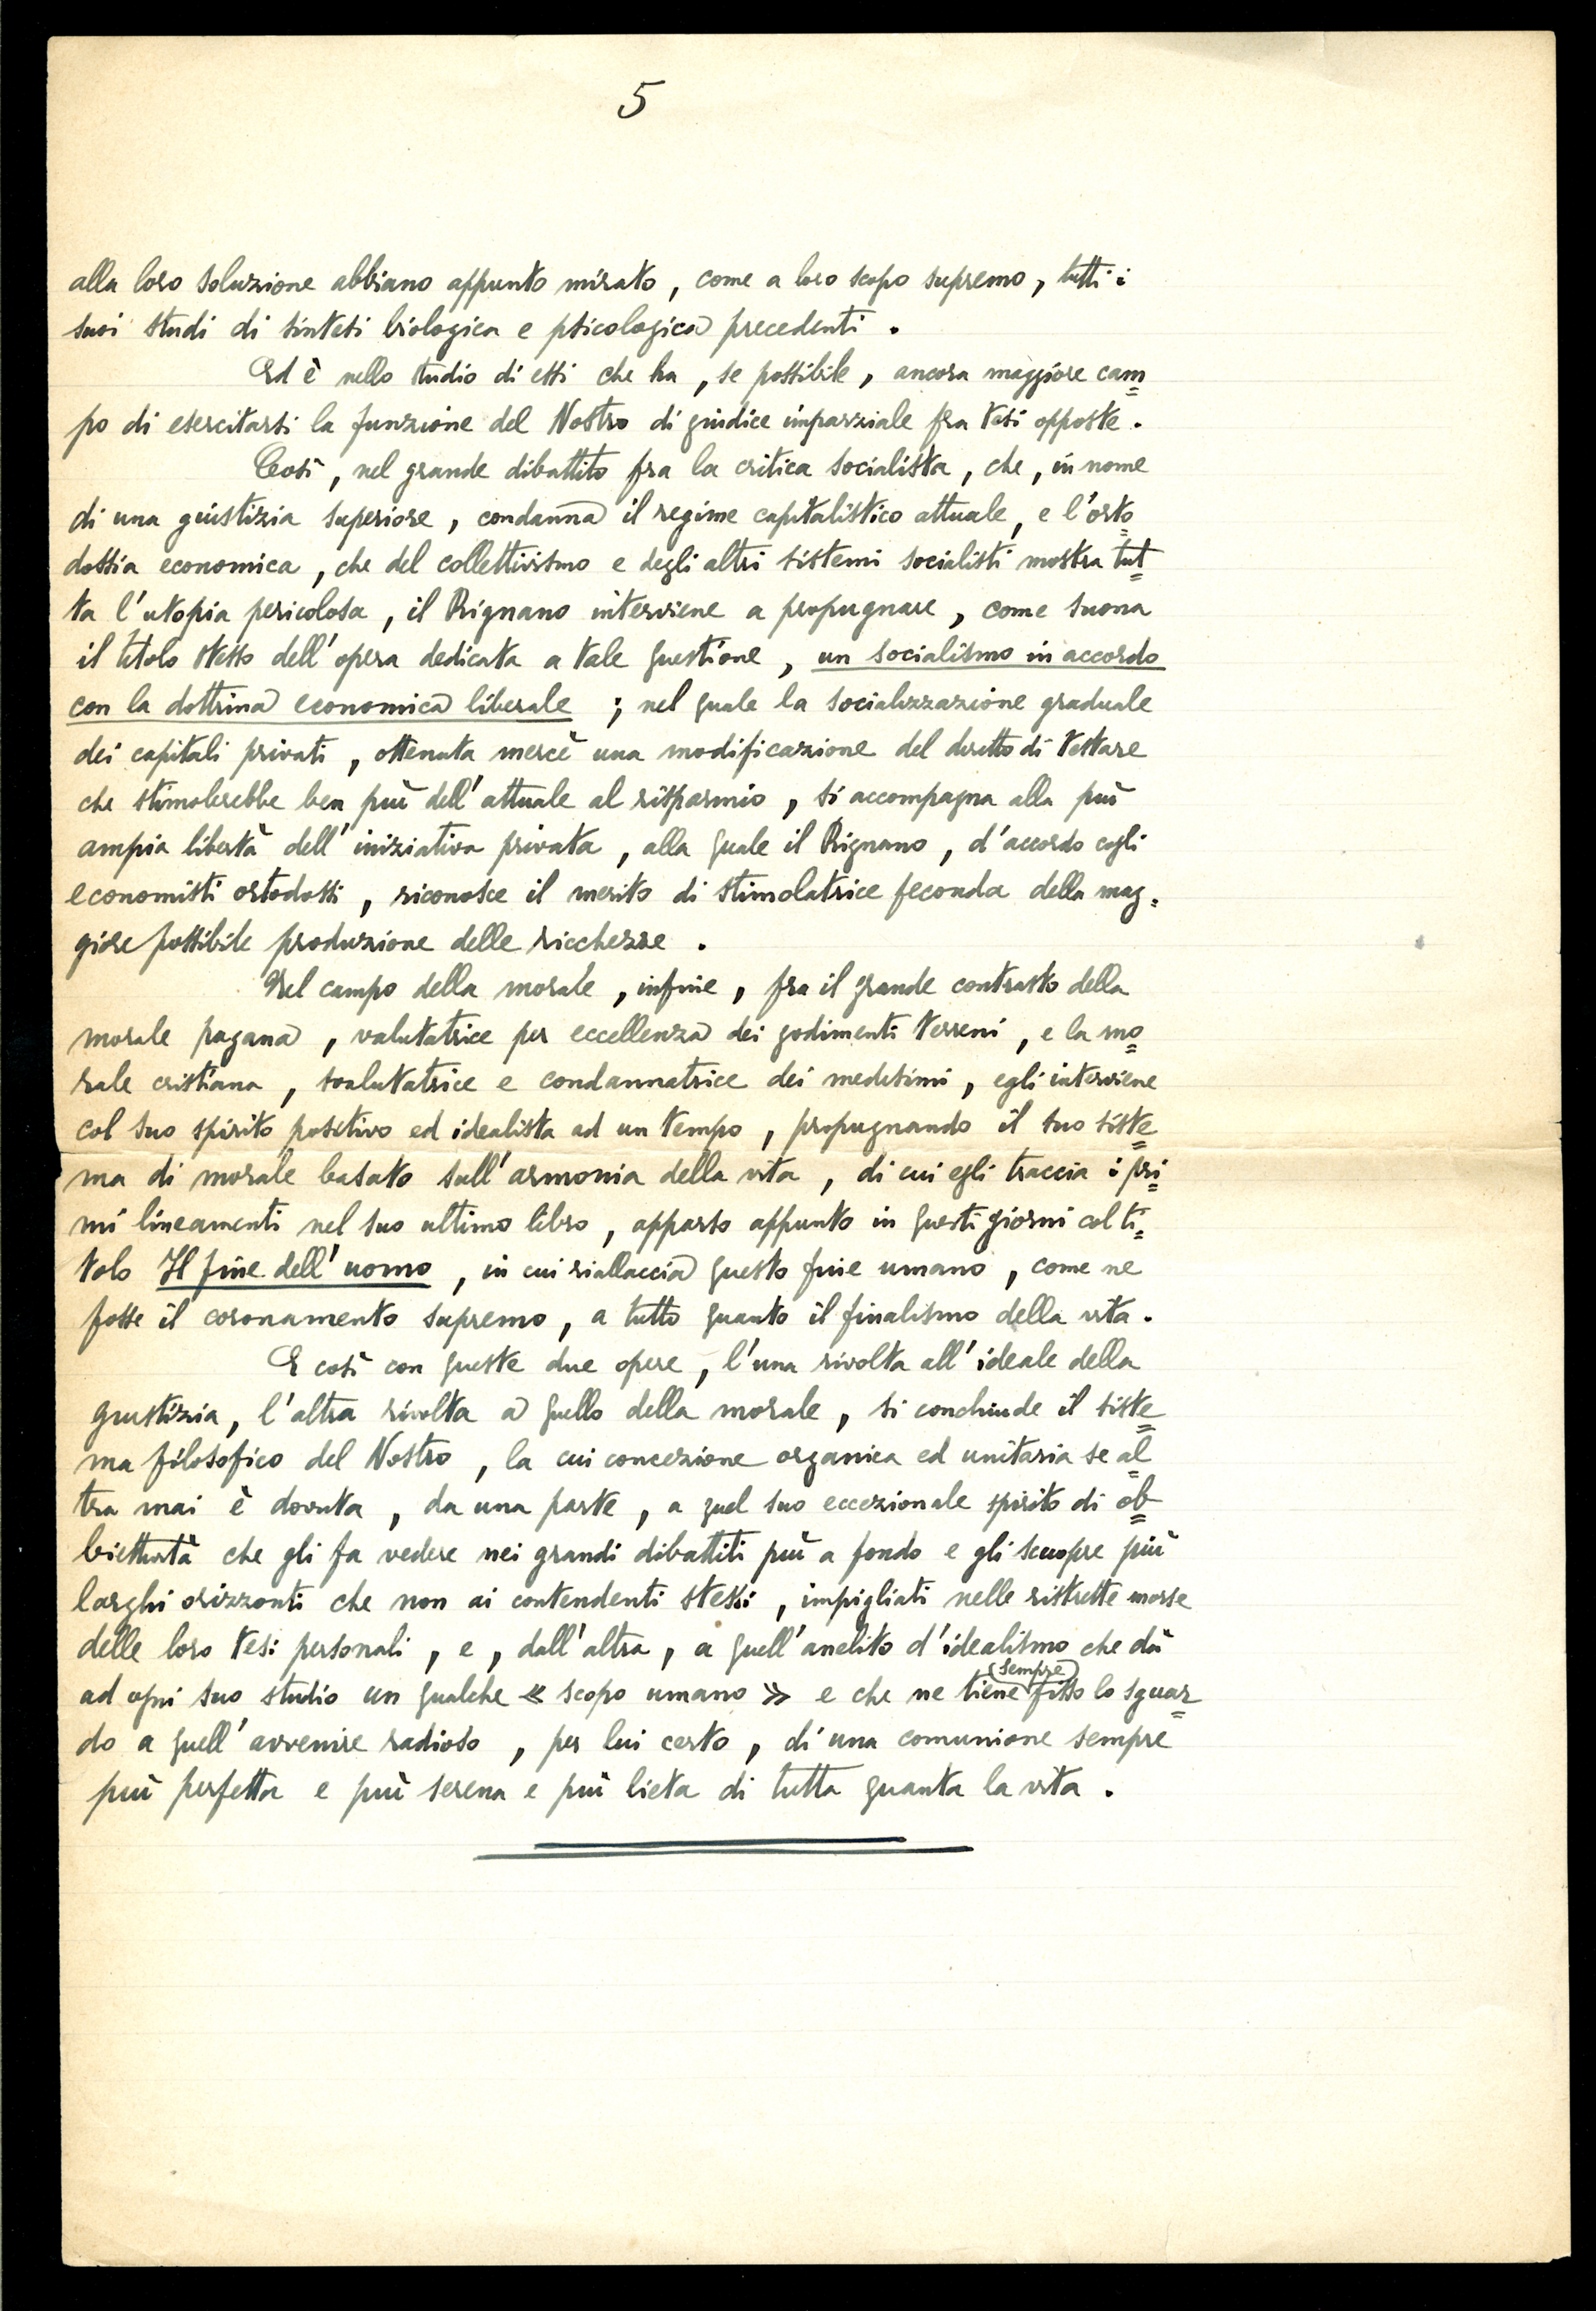 5
alla loro soluzione abbiano appunto mirato, come a loro scopo supremo, tutti i
suoi studi di sintesi biologica e psicologica precedenti.
Ed è nello studio di essi che ha, se possibile, ancora maggiore cam=
po di esercitarsi la funzione del Nostro di giudice imparziale fra tesi opposte.
Così, nel grande dibattito fra la critica socialista, che, in nome
di una giustizia superiore, condanna il regime capitalistico attuale, e l'orto=
dossia economica, che del collettivismo e degli altri sistemi socialisti mostra tut=
ta l'utopia pericolosa, il Rignano interviene a propugnare, come suona
il titolo stesso dell'opera dedicata a tale questione, un socialismo in accordo
con la dottrina economica liberale; nel quale la socializzazione graduale
dei capitali privati, ottenuta mercè una modificazione del diritto di testare
che stimolerebbe ben più dell'attuale al risparmio, si accompagna alla più
ampia libertà dell'iniziativa privata, alla quale il Rignano, d'accordo cogli
economisti ortodossi, riconosce il merito di stimolatrice feconda della mag=
giore possibile produzione delle ricchezze.
Nel campo della morale, infine, fra il grande contrasto della
morale pagana, valutatrice per eccellenza dei godimenti terreni, e la mo=
rale cristiana, svalutatrice e condannatrice dei medesimi, egli interviene
col suo spirito positivo ed idealista ad un tempo, propugnando il suo siste=
ma di morale basato sull'armonia della vita, di cui egli traccia i pri=
mi lineamenti nel suo ultimo libro, apparso appunto in questi giorni col ti=
tolo Il fine dell'uomo, in cui riallaccia questo fine umano, come ne
fosse il coronamento supremo, a tutto quanto il finalismo della vita.
E così con queste due opere, l'una rivolta all'ideale della
giustizia, l'altra rivolta a quello della morale, si conchiude il siste=
ma filosofico del Nostro, la cui concezione organica ed unitaria se al=
tra mai è dovuta, da una parte, a quel suo eccezionale spirito di ob=
biettività che gli fa vedere nei grandi dibattiti più a fondo e gli scuopre più
larghi orizzonti che non ai contendenti stessi, impigliati nelle ristrette morse
delle loro tesi personali, e, dall'altra, a quell'anelito d'idealismo che dà
ad ogni suo studio un qualche « scopo umano » e che ne tiene (sempre) fisso lo sguar=
do a quell'avvenire radioso, per lui certo, di una comunione sempre
più perfetta e più serena e più lieta di tutta quanta la vita.